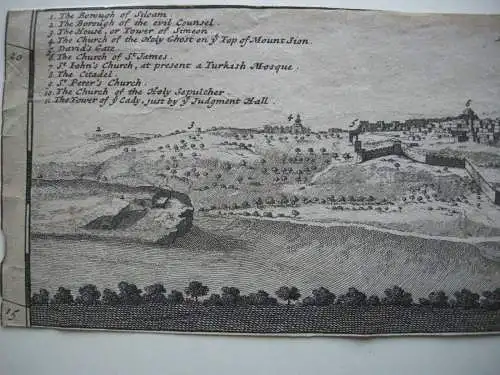 1. The Borough of Siloam.
2. The Borough of the evil Counsel.
3. The House, or Tower of Simeon
4. The Church of the Holy Ghost on ẏ Top of Mount Sion.
5. David's Gate
6. The Church of St. James.
7. St. John's Church, at present a Turkish Mosque
8. The Citadel.
9. St. Peter's Church.
10. The Church of the Holy Sepulcher
11. The Tower of ẏ Cady, just by ẏ Judgment Hall.
20
2
3
4
15